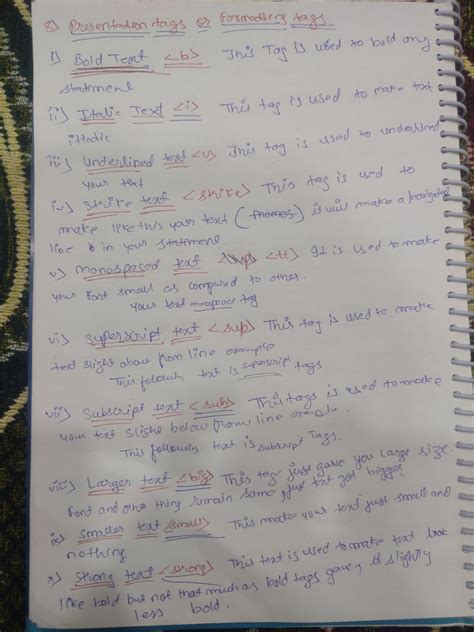 8) Presentation tags or Formatting tags
i) Bold Text <b> This Tag is used to bold any
statement
ii) Italic Text <i> This tag is used to make text
ithatic
iii) Underlined text <u> This tag is used to underlined
your text
iv) Strike text <strike> This tag is used to
make like this your text (thomas) it will make a horizontal
line in your statement
v) Monospaced text <tt> It is used to make
your font small as compared to other.
your text monospaced tag
vi) Superscript text <sup> This tag is used to make
text slight above from line example
This followin text is superscript tags
vii) Subscript text <sub> This tag is used to make
your text slight below from line example.
This followin text is subscript Tags.
viii) Larger text <big> This tag just gave you large size.
Font and other thing remain same, just text got bigger
ix) smaller text <small> This make your text just small and
nothing
x) Strong text <strong> This text is used to make text look
like bold but not that much as bold tags gave, slightly
less bold.